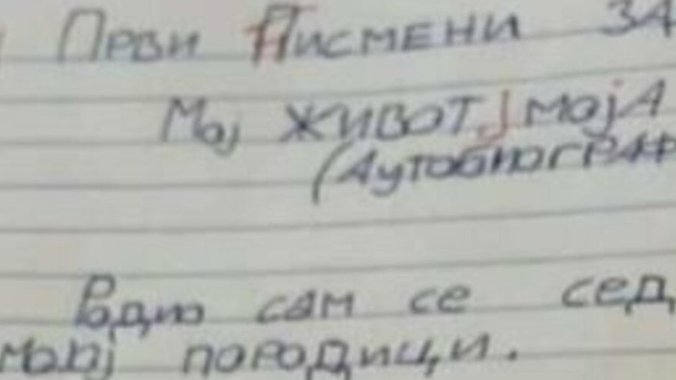 Први Писмени ЗА
Мој живот, мојА
(АутобиогРАФ
Родио сам се сед
мојој породици.